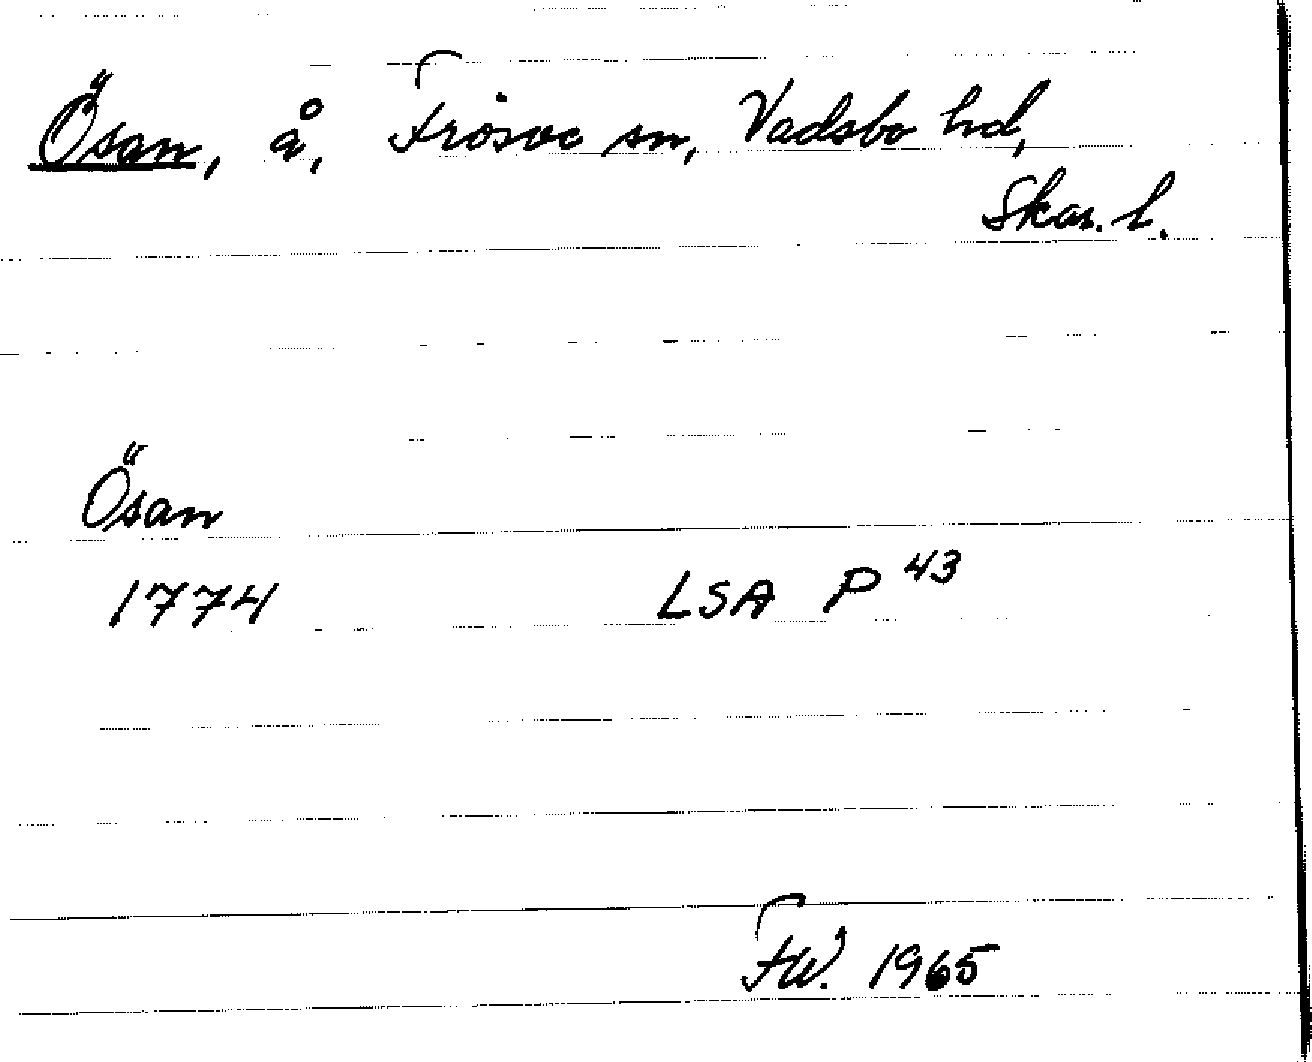 Ösan, å, Frösve sn, Vadsbo hd,
Skar. l.
Ösan
1774 LSA P 43
FW. 1965